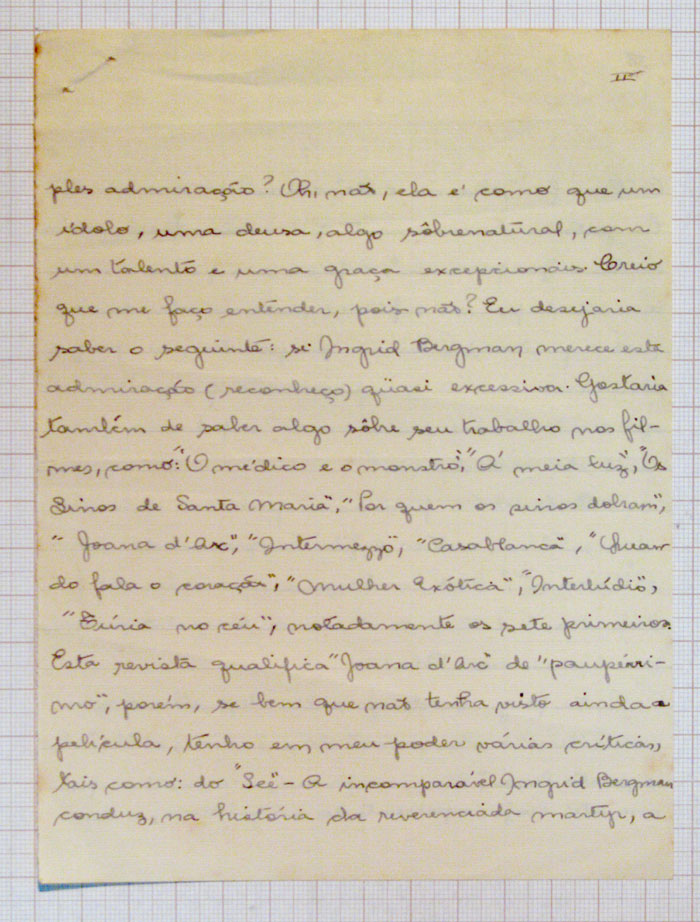 III
ples admiração? Oh, não, ela é como que um
ídolo, uma deusa, algo sôbrenatural, com
um talento e uma graça excepcionais. Creio
que me faço entender, pois não? Eu desejaria
saber o seguinte: si Ingrid Bergman merece esta
admiração (reconheço) qüasi excessiva. Gostaria
também de saber algo sôbre seu trabalho nos fil-
mes, como: "O médico e o monstro", "À meia luz", "Os
Sinos de Santa Maria", "Por quem os sinos dobram",
"Joana d'Arc", "Intermezzo", "Casablanca", "Quan
do fala o coração", "Mulher Exótica", "Interlúdio",
"Fúria no céu", notadamente os sete primeiros.
Esta revista qualifica "Joana d'Arc" de "paupérri-
mo", porém, se bem que não tenha visto ainda a
película, tenho em meu poder várias críticas,
tais como: do "See" - A incomparável Ingrid Bergman
conduz, na história da reverenciada martyr, a